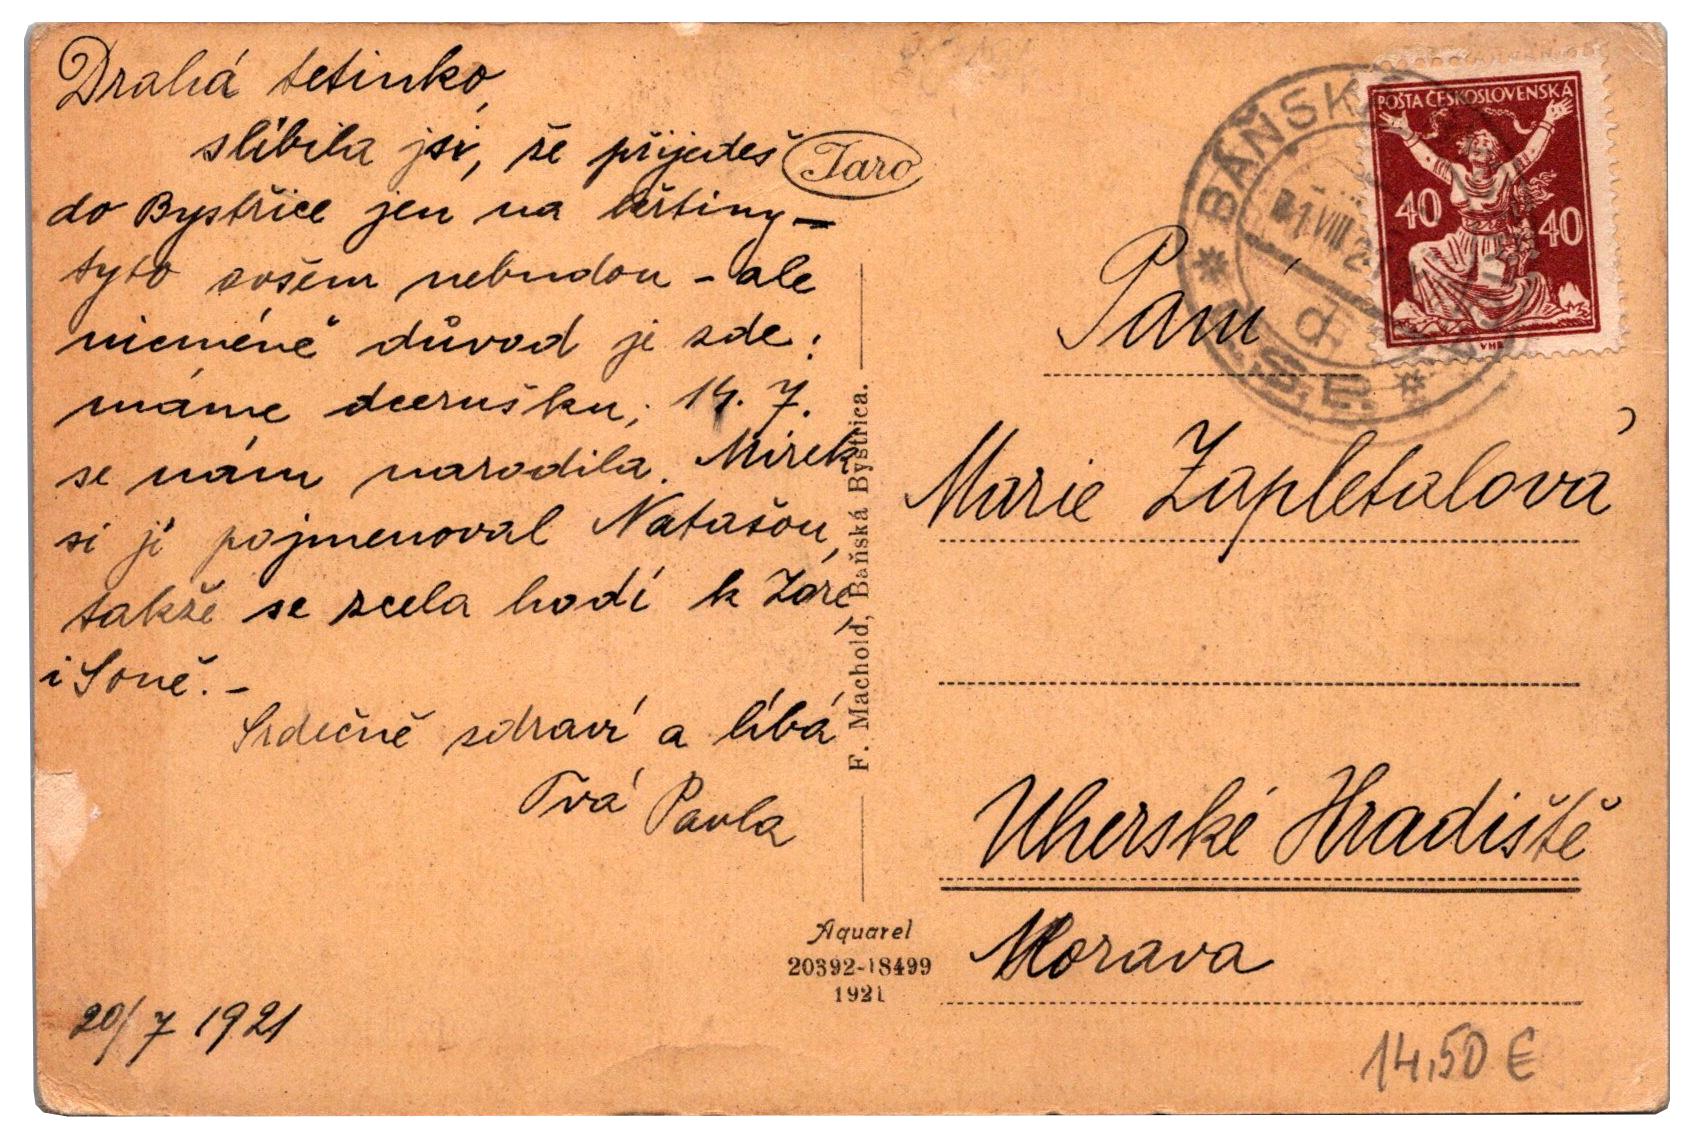 Drahá tetinko,
slíbila jsi, že přijedeš
do Bystřice jen na křtiny –
tyto sošem nebudou – ale
nicméně důvod je zde:
máme dcerušku; 14. 7.
se nám narodila. Mirek
si jí pojmenoval Natašou,
takže se zcela hodí k Zóře
i Soně. –
Srdečně zdraví a líbá
Tvá Pavla
20/7 1921
Taro
F. Machold, Baňská Bystrica.
Aquarel
20392-18499
1921
POŠTA ČESKOSLOVENSKÁ
40 40
VHB
BAŇSK
VIII 21
d
Paní
Marie Zapletalová
Uherské Hradiště
Morava
14,50 €